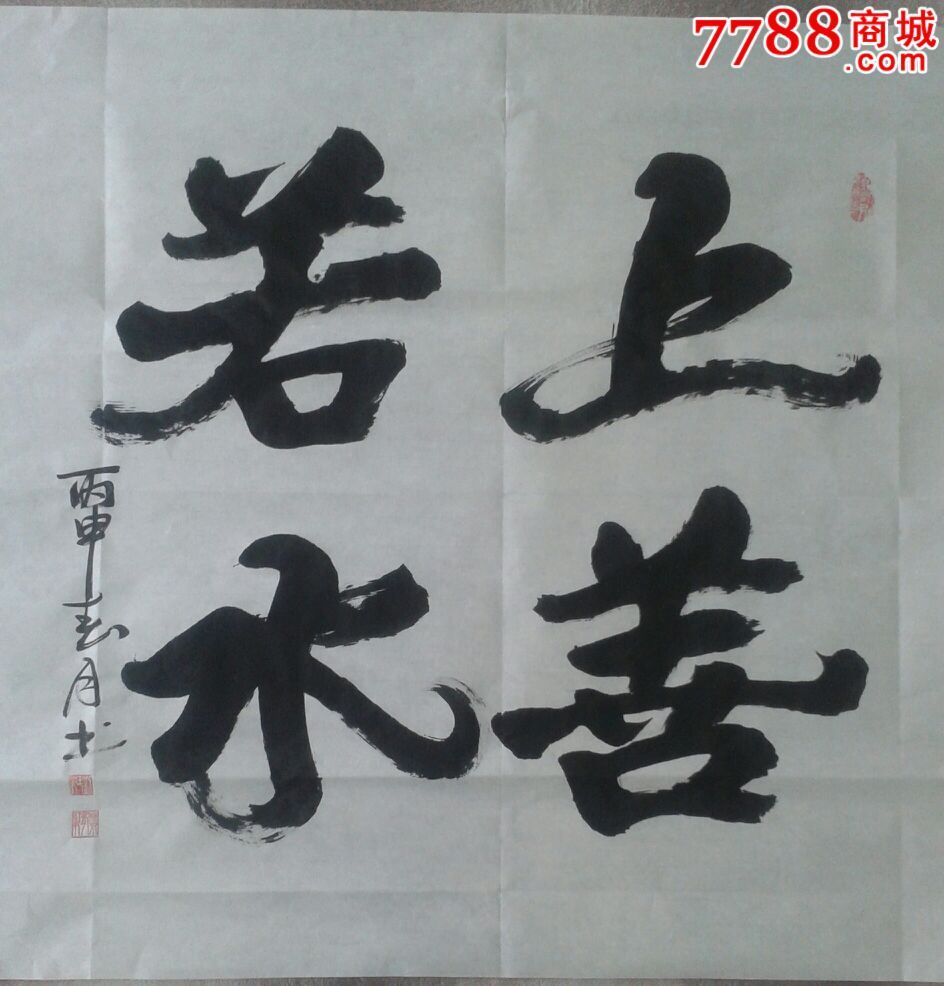 7788商城
.com
上善
若水
丙申春月